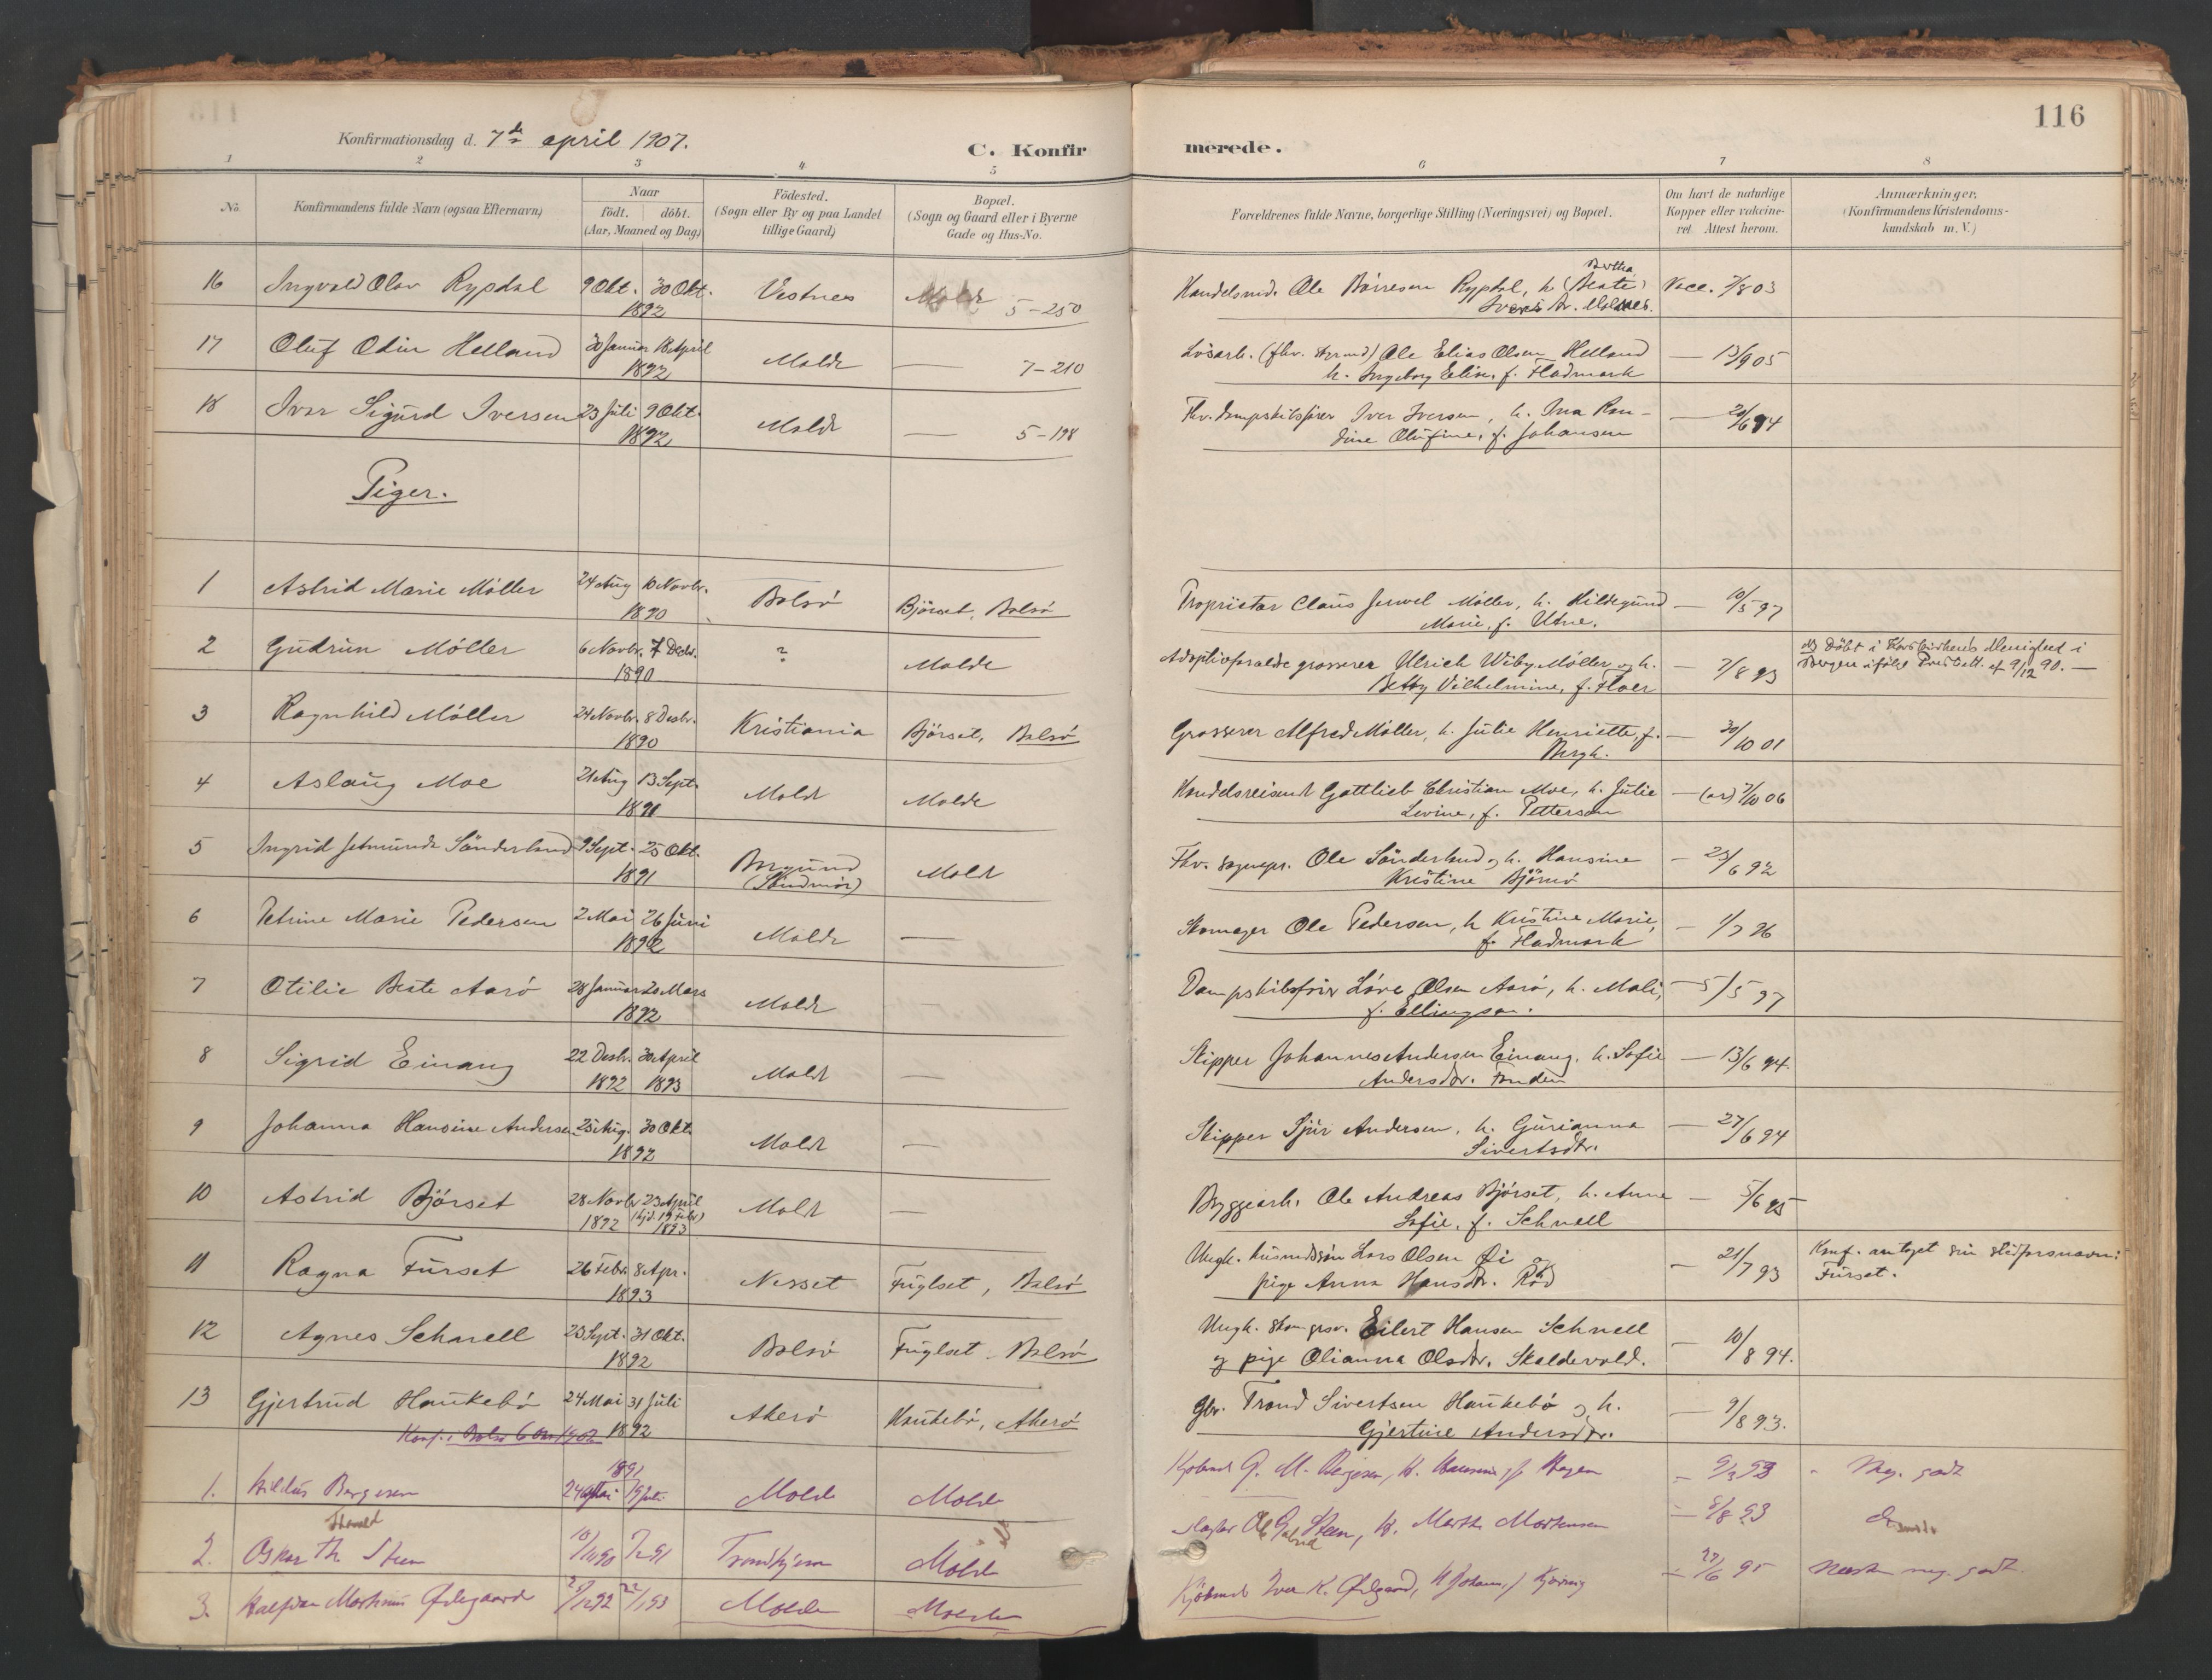 116
Konfirmationsdag d. 7de april 1907.
C. Konfirmerede.
1 2 3 4 5 6 7 8
No
Konfirmandens fulde Navn (ogsaa Efternavn)
Naar
födt. döbt.
(Aar, Maaned og Dag)
Födested.
(Sogn eller By og paa Landet
tillige Gaard)
Bopæl.
(Sogn og Gaard eller i Byerne
Gade og Hus-No.
Forældrenes fulde Navne, borgerlige Stilling (Næringsvei) og Bopæl.
Om havt de naturlige
Kopper eller vakcine-
ret. Attest herom.
Anmærkninger,
(Konfirmandens Kristendoms-
kundskab m. V.)
16 Ingvald Olav Rypdal 9 Okt. 30 Okt. 1892 Vestnes Molde 5-250 Handelsmd. Ole Börresen Rypdal, h. (Beate) Vacc. 7/8 03
17 Oluf Odin Helland 30 Januar 18 April 1892 Molde — 7-210 Lösarb. (fhv. styrmd) Ole Elias Olsen Helland — 13/9 05
h. Ingeborg Eline, f. Fladmark
18 Iver Sigurd Iversen 23 Juli 9 Okt. 1892 Molde — 5-198 Fhv. dampskibsförer Iver Iversen, h. Ina Ran- — 20/6 94
dine Olufine, f. Johansen
Piger.
1 Astrid Marie Möller 24 Aug 10 Novbr. 1890 Bolsö Björset, Bolsö Proprietær Claus Jervel Möller, h. Hildegund — 10/5 97
Marie, f. Utne.
2 Gudrun Möller 6 Novbr. 7 Decbr. 1890 ? Molde Adoptivforældre grosserer Ulrich Wiby Möller og h. — 7/8 93 Döbt i Korskirkens Menighed i
Betzy Vilhelmine, f. Floer Bergen ifölge Presteatt. af 9/12 90. —
3 Ragnhild Möller 24 Novbr. 8 Desbr. 1890 Kristiania Björset, Bolsö Grosserer Alfred Möller, h. Julie Henriette, f. — 30/10 01
Bergh.
4 Aslaug Moe 21 Aug 13 Sept. 1891 Molde Molde Handelsreisende Gottlieb Christian Moe, h. Julie — 7/10 06
Levine, f. Petterson
5 Ingrid Jetmunda Sönderland 9 Sept. 25 Okt. 1891 Borgund Molde Fhv. sognepr. Ole Sönderland og h. Hansine — 23/6 92
(Söndmör) Kristine Björnö
6 Petrine Marie Pedersen 2 Mai 26 Juni 1892 Molde — Skomager Ole Pedersen, h. Kristine Marie, — 1/7 96
f. Fladmark
7 Otilie Beate Aarö 28 Januar 20 Mars 1892 Molde Dampskibsförer Låve Olsen Aarö, h. Mali, — 5/5 97
f. Ellingsen.
8 Sigrid Einang 22 Desbr. 30 April 1892 1893 Molde — Skipper Johannes Andersen Einang, h. Sofie — 13/6 94.
Andersdtr.
9 Johanna Hansine Andersen 25 Aug. 30 Okt. 1892 Molde — Skipper Sjur Andersen, h. Gurianna — 27/6 94
Sivertsdtr.
10 Astrid Björset 28 Novbr 23 April 1892 (hjd. 19 Febr) 1893 Molde — Byggearb. Ole Andreas Björset, h. Anne — 5/6 95
Sofie, f. Schnell
11 Ragna Furset 26 Febr. 8 Apr. 1893 Nesset Fuglset, Bolsö Ungk. husmdssön Lars Olsen Öi og — 21/7 93 Konf. antaget sin stedfarsnavn:
pige Anna Hansdtr. Röd Furset.
12 Agnes Schnell 23 Sept. 31 Okt. 1892 Bolsö Fuglset, Bolsö Ungk. Eilert Hansen Schnell — 10/8 94.
og pige Olianna Olsdtr. Skaldevold.
13 Gjertrud Haukebö 24 Mai 31 Juli 1892 Akerö Haukebö, Akerö Gbr. Trond Sivertsen Haukebö og h. — 9/8 93.
Gjertine Andersdtr.
1891
1. Bergesen 24 Mai 19 Juli Molde Molde — Meg. godt
2. Oskar Th. Steen 10/11 90 Trondhjem Molde Ole G. Steen, h. Marth. Mortensen — 8/8 93 do
3. Halfdan Martinus Ödegaard Molde Molde Kjöbmd. Iver K. Ödegaard, — 27/6 95 Næsten meg. godt.